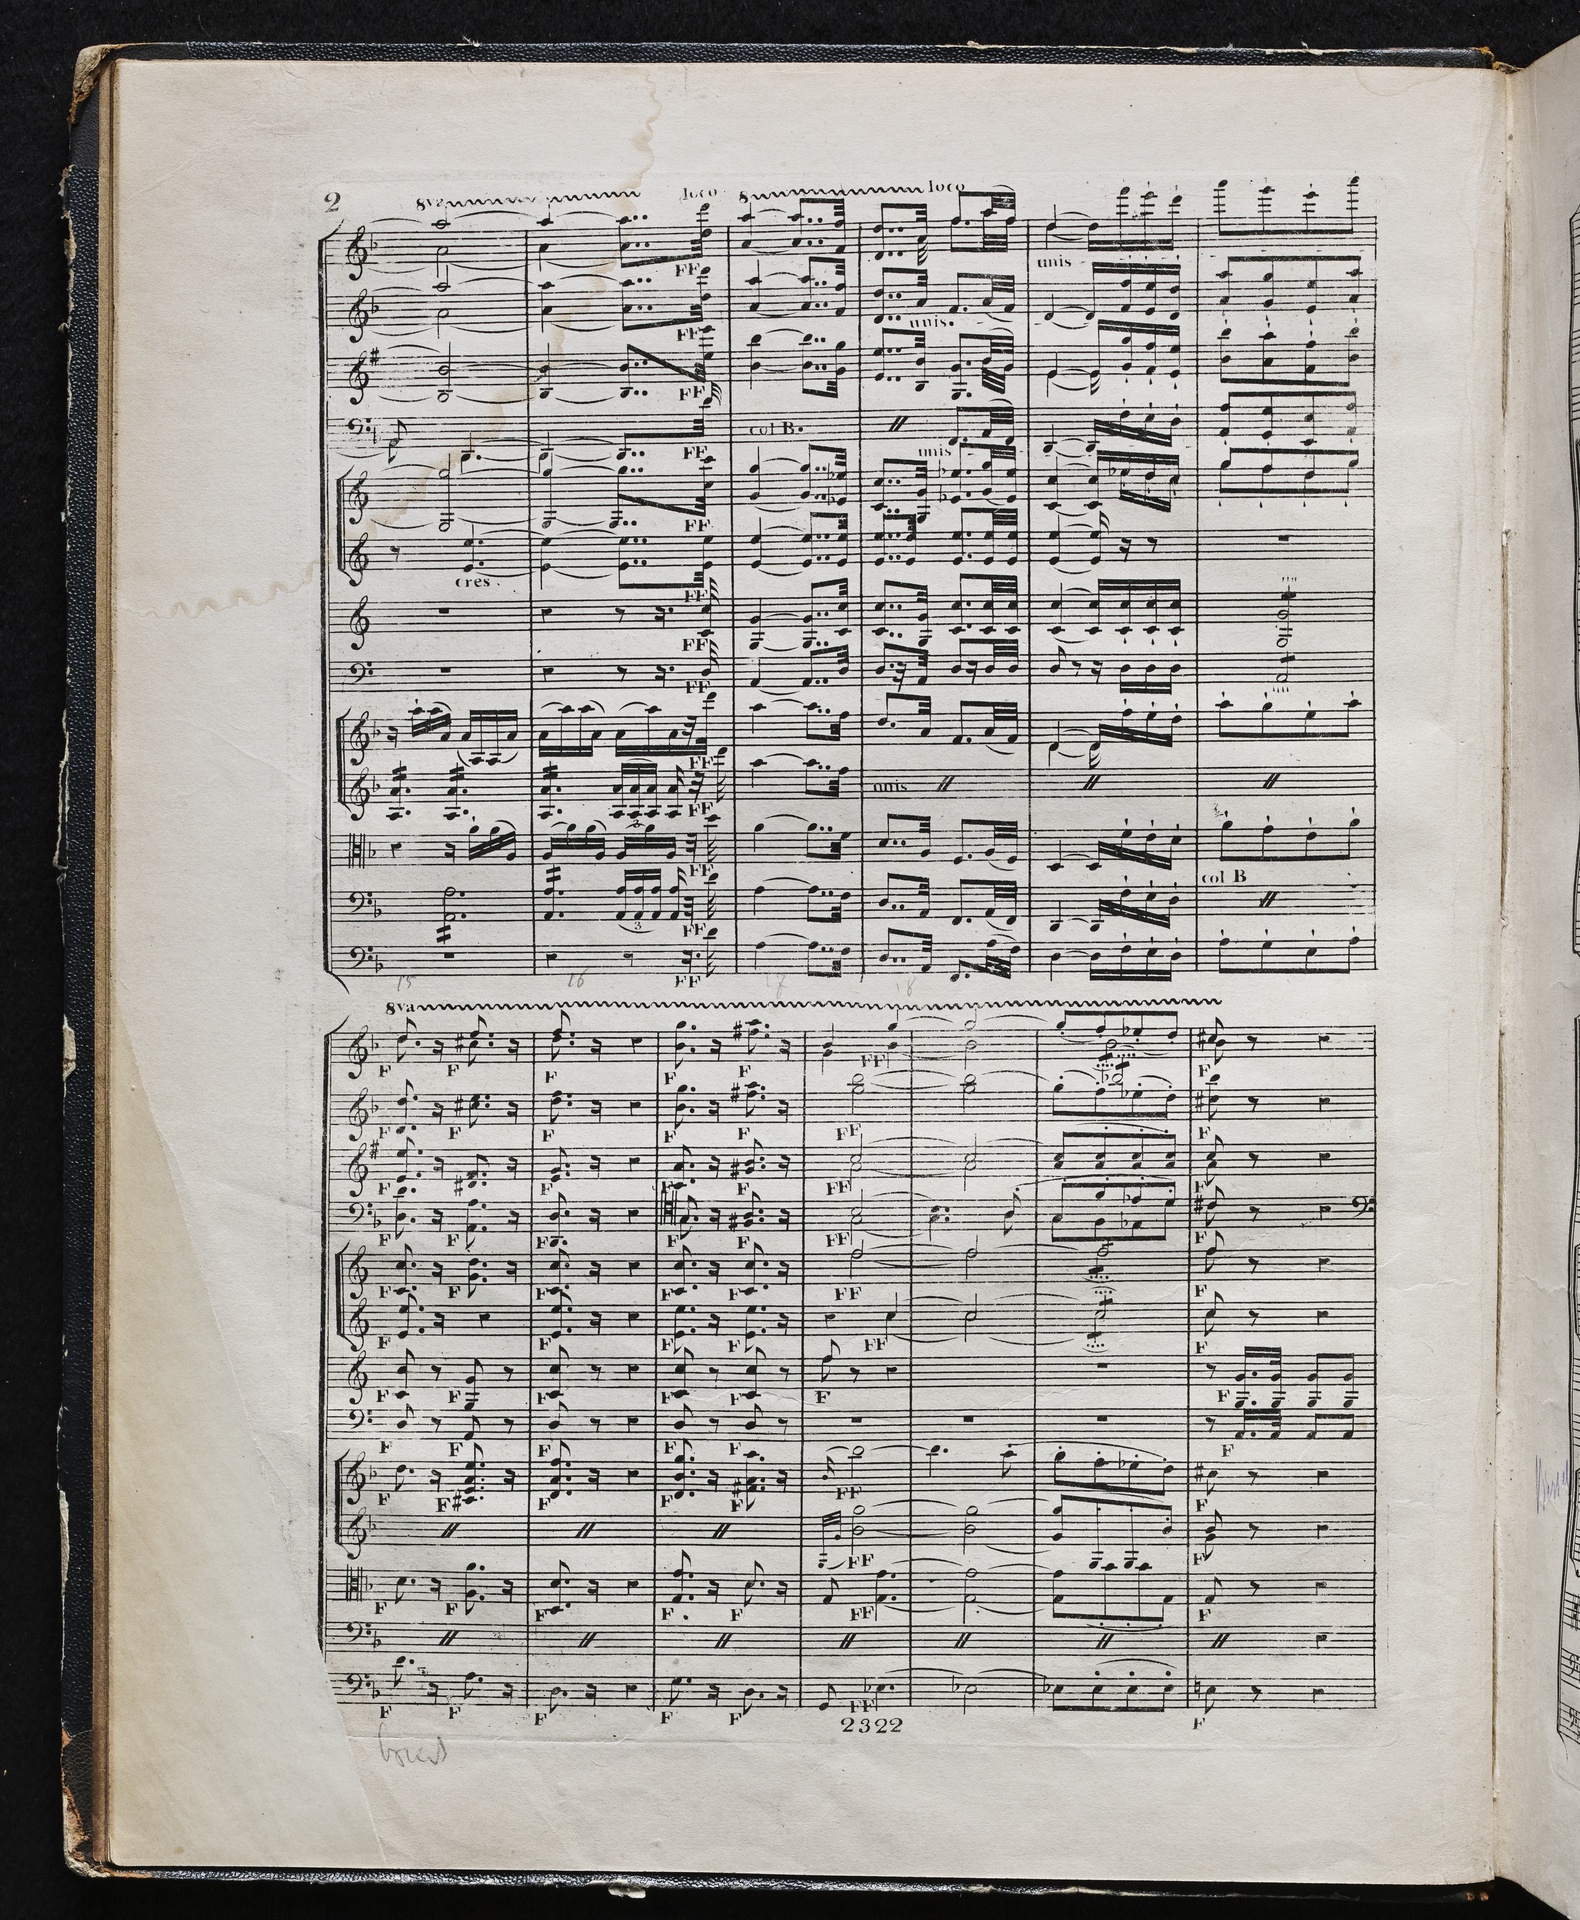 2
8va loco 8 loco
FF
unis
FF
unis.
FF
col B.
FF
unis
FF
cres.
FF
FF
FF
FF
unis
FF
3
FF
col B
3
FF
FF
15 16 17 18
8va
F F F F F FF F
F F F F F FF F
F F F F FF F
F F F F F FF F
F F F F F FF F
F F F F FF F
F F F F F F F
F F F F F F
F F F F F FF F
FF F
F F F F F FF F
F F F F F FF F
2322